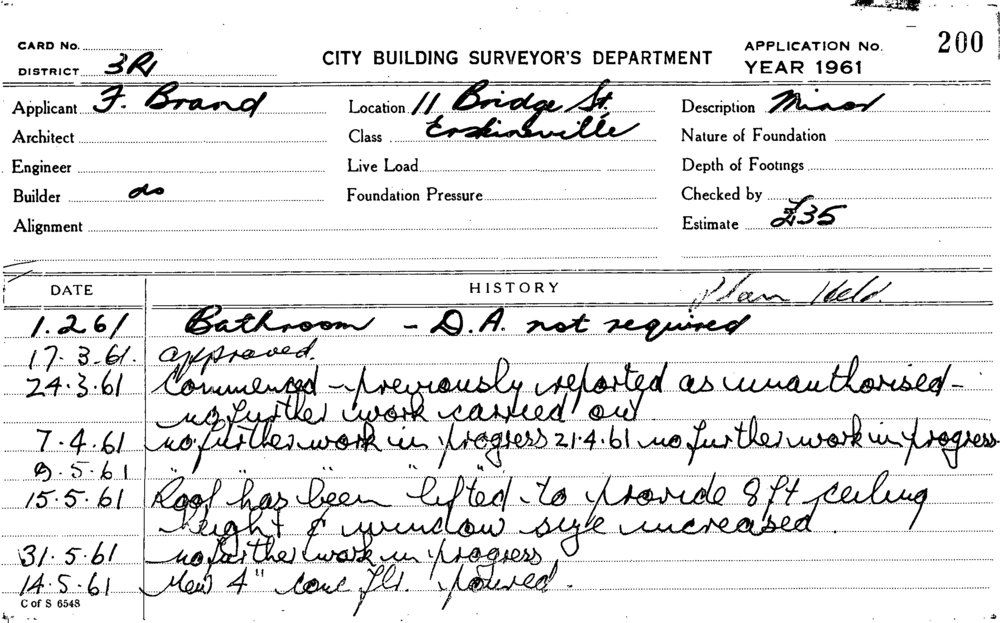 CARD No.
DISTRICT 3R1
CITY BUILDING SURVEYOR'S DEPARTMENT
APPLICATION No. 200
YEAR 1961
Applicant F. Brand
Location 11 Bridge St.
Description Minor
Architect
Class Erskineville
Nature of Foundation
Engineer
Live Load
Depth of Footings
Builder do
Foundation Pressure
Checked by
Alignment
Estimate £35
DATE
HISTORY
Plan Held
1.2.61 Bathroom - D.A. not required
17.3.61. approved.
24.3.61 Commenced - previously reported as unauthorised -
no further work carried out
7.4.61 no further work in progress 21.4.61 no further work in progress
9.5.61 " " " " "
15.5.61 Roof has been lifted to provide 8ft ceiling
height & window size increased.
31.5.61 no further work in progress
14.5.61 New 4" conc flr. poured.
C of S 6548